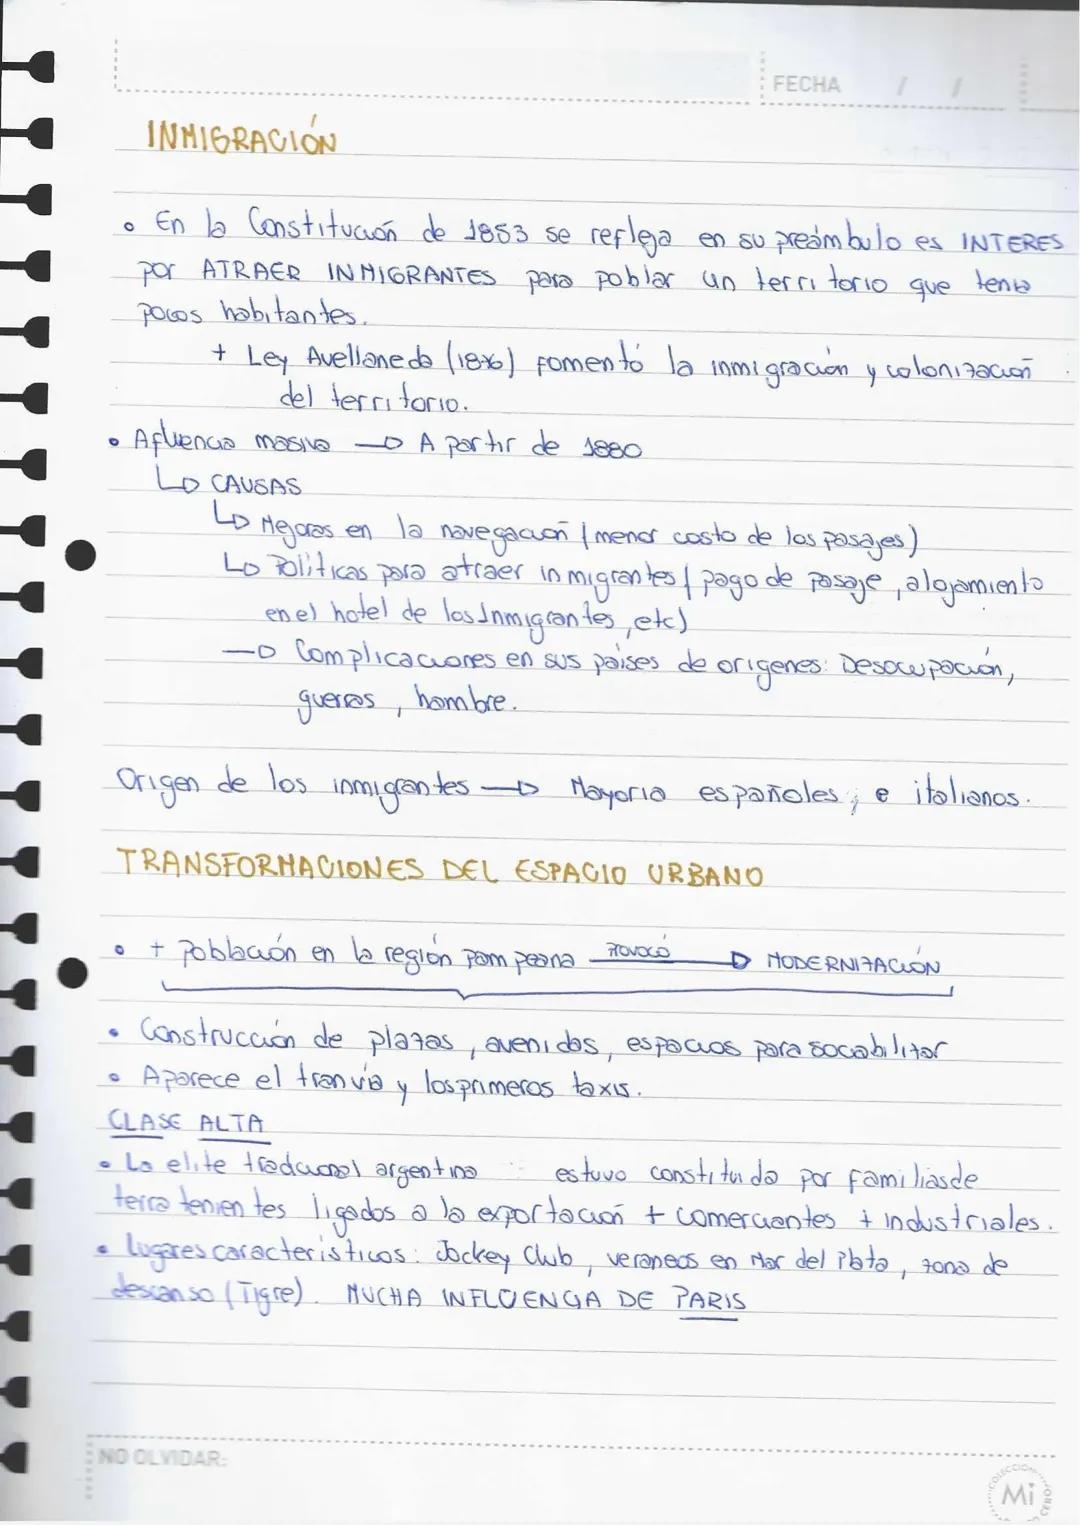 FECHA / /
INMIGRACIÓN
• En la Constitución de 1853 se refleja en su preámbulo es INTERES
por ATRAER INMIGRANTES para poblar un territorio que tenia
pocos habitantes.
+ Ley Avellaneda (1876) fomentó la inmigración y colonización
del territorio.
• Afluencia masiva → A partir de 1880
↳ CAUSAS
↳ Mejoras en la navegación (menor costo de los pasajes)
↳ Políticas para atraer inmigrantes (pago de pasaje, alojamiento
en el hotel de los Inmigrantes, etc)
→ Complicaciones en sus países de orígenes: Desocupación,
guerras, hambre.
Origen de los inmigrantes → Mayoria españoles, e italianos.
TRANSFORMACIONES DEL ESPACIO URBANO
• + Población en la región pampeana PROVOCÓ → MODERNIZACIÓN
• Construcción de plazas, avenidas, espacios para socabilizar
• Aparece el tranvía y los primeros taxis.
CLASE ALTA
• La elite tradicional argentina estuvo constituida por familias de
terratenientes ligados a la exportación + comerciantes + industriales.
• Lugares característicos: Jockey Club, veraneos en Mar del Plata, zona de
descanso (Tigre). MUCHA INFLUENCIA DE PARIS
NO OLVIDAR:
COLECCIÓN
Mi
CERO